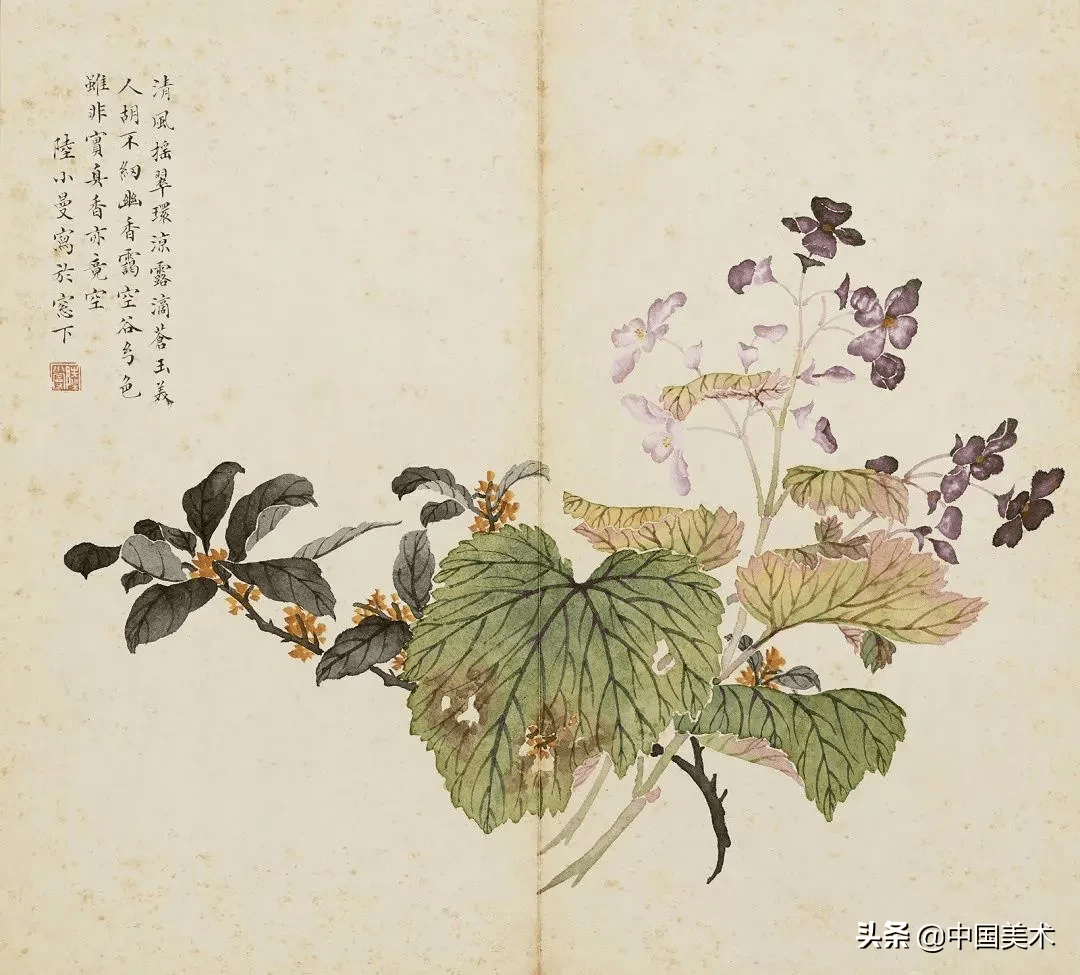 清風搖翠環涼露滴蒼玉美
人胡不紉幽香靄空谷多色
雖非實真香亦竟空
陸小曼寫於窓下
头条 @中国美术